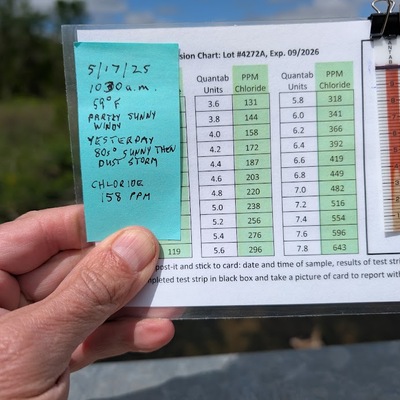 5/17/25
1030a.m.
59°F
PARTLY SUNNY
WINDY
YESTERDAY
80s° SUNNY THEN
DUST STORM
CHLORIDE
158 PPM
sion Chart: Lot #4272A, Exp. 09/2026
Quantab Units PPM Chloride Quantab Units PPM Chloride
3.6 131 5.8 318
3.8 144 6.0 341
4.0 158 6.2 366
4.2 172 6.4 392
4.4 187 6.6 419
4.6 203 6.8 449
4.8 220 7.0 482
5.0 238 7.2 516
5.2 256 7.4 554
5.4 276 7.6 596
119 5.6 296 7.8 643
post-it and stick to card: date and time of sample, results of test stri
mpleted test strip in black box and take a picture of card to report with